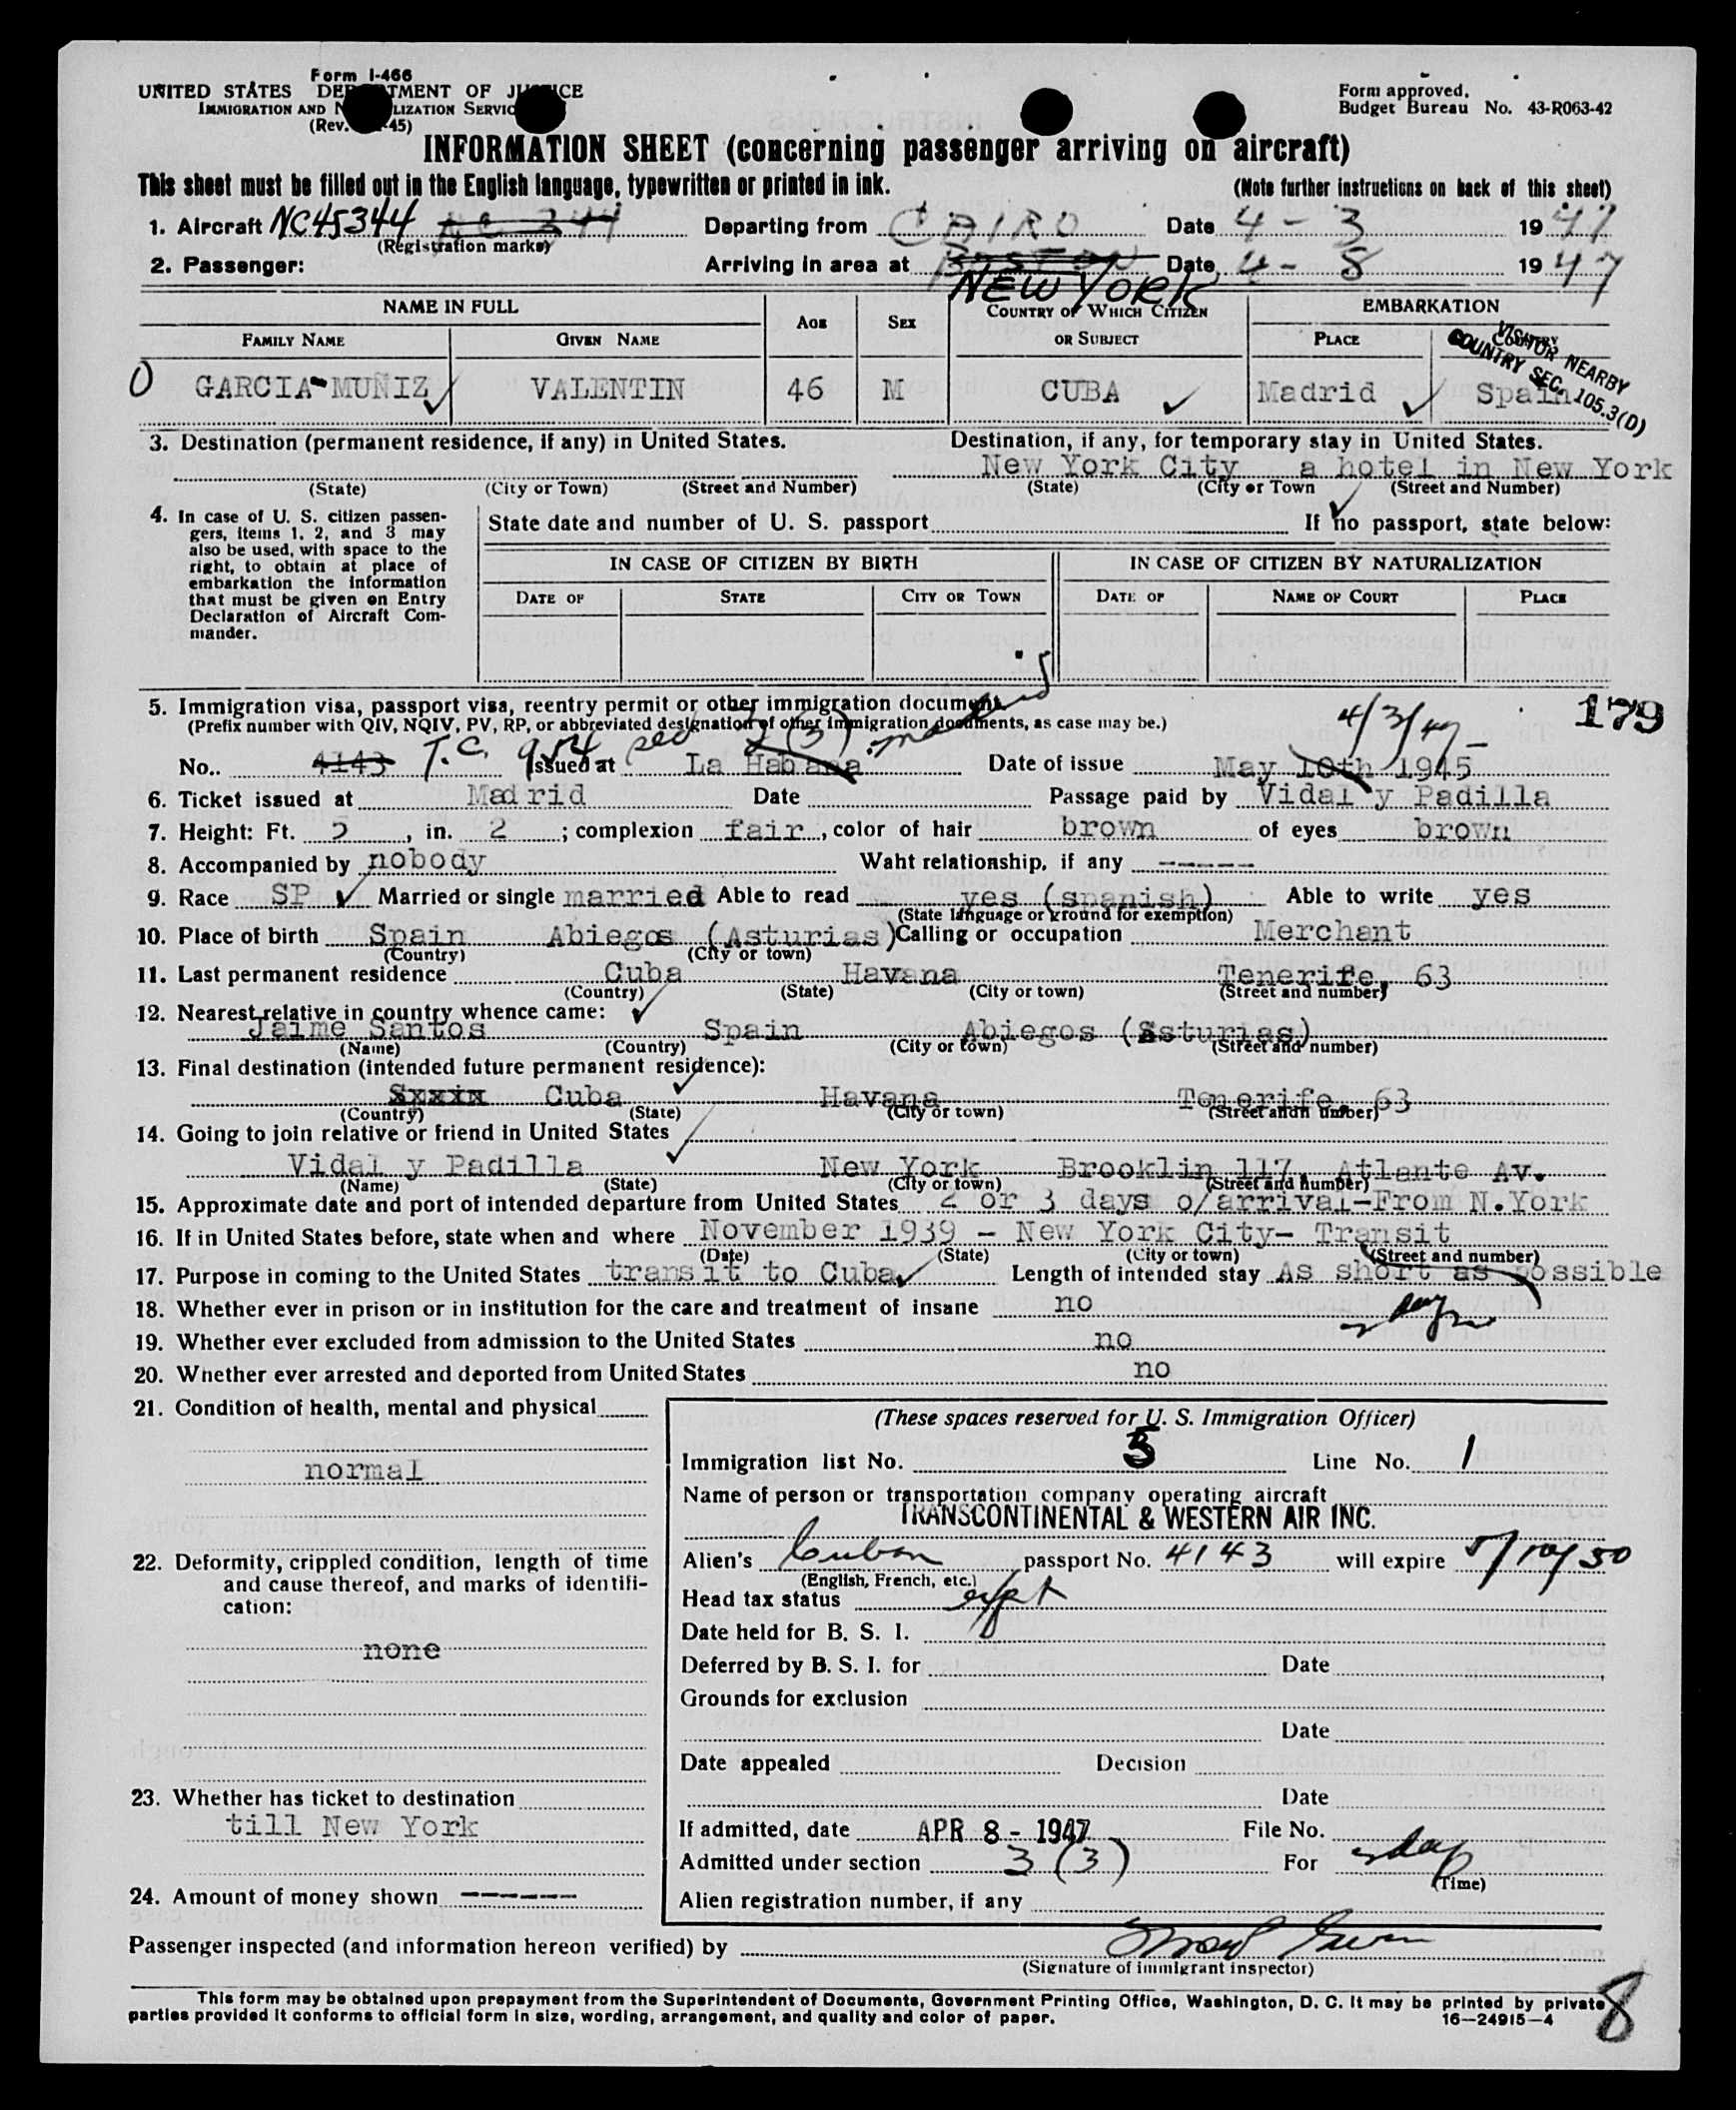 Form I-466
UNITED STATES DEPARTMENT OF JUSTICE
IMMIGRATION AND NATURALIZATION SERVICE
(Rev. -45)
Form approved.
Budget Bureau No. 43-R063-42
INFORMATION SHEET (concerning passenger arriving on aircraft)
This sheet must be filled out in the English language, typewritten or printed in ink. (Note further instructions on back of this sheet)
1. Aircraft NC45344 Departing from CAIRO Date 4 - 3 1947
(Registration marks)
2. Passenger: Arriving in area at BOSTON Date 4 - 8 1947
NEW YORK
NAME IN FULL AGE SEX COUNTRY OF WHICH CITIZEN OR SUBJECT EMBARKATION
FAMILY NAME GIVEN NAME PLACE COUNTRY
VISITOR NEARBY
COUNTRY SEC. 105.3(D)
O GARCIA-MUÑIZ VALENTIN 46 M CUBA Madrid Spain
3. Destination (permanent residence, if any) in United States. Destination, if any, for temporary stay in United States.
New York City a hotel in New York
(State) (City or Town) (Street and Number) (State) (City or Town (Street and Number)
4. In case of U. S. citizen passen-
gers, items 1, 2, and 3 may
also be used, with space to the
right, to obtain at place of
embarkation the information
that must be given on Entry
Declaration of Aircraft Com-
mander.
State date and number of U. S. passport If no passport, state below:
IN CASE OF CITIZEN BY BIRTH IN CASE OF CITIZEN BY NATURALIZATION
DATE OF STATE CITY OR TOWN DATE OF NAME OF COURT PLACE
5. Immigration visa, passport visa, reentry permit or other immigration document.
(Prefix number with QIV, NQIV, PV, RP, or abbreviated designation of other immigration documents, as case may be.)
179
4/3/47
T.C. 954 sec 3 (3) Madrid
No.. 4143 Issued at La Habana Date of issue May 10th 1945
6. Ticket issued at Madrid Date Passage paid by Vidal y Padilla
7. Height: Ft. 5, in. 2; complexion fair, color of hair brown of eyes brown
8. Accompanied by nobody Waht relationship, if any -----
9. Race SP Married or single married Able to read yes (spanish) Able to write yes
(State language or ground for exemption)
10. Place of birth Spain Abiegos (Asturias) Calling or occupation Merchant
(Country) (City or town)
11. Last permanent residence Cuba Havana Tenerife, 63
(Country) (State) (City or town) (Street and number)
12. Nearest relative in country whence came:
Jaime Santos Spain Abiegos (Asturias)
(Name) (Country) (City or town) (Street and number)
13. Final destination (intended future permanent residence):
Sxxix Cuba Havana Tenerife, 63
(Country) (State) (City or town) (Street andn umber)
14. Going to join relative or friend in United States
Vidal y Padilla New York Brooklin 117, Atlante Av.
(Name) (State) (City or town) (Street and number)
15. Approximate date and port of intended departure from United States 2 or 3 days o/arrival-From N.York
16. If in United States before, state when and where November 1939 - New York City- Transit
(Date) (State) (City or town) (Street and number)
17. Purpose in coming to the United States transit to Cuba Length of intended stay As short as possible
18. Whether ever in prison or in institution for the care and treatment of insane no
19. Whether ever excluded from admission to the United States no
20. Whether ever arrested and deported from United States no
21. Condition of health, mental and physical
normal
22. Deformity, crippled condition, length of time
and cause thereof, and marks of identifi-
cation:
none
23. Whether has ticket to destination
till New York
24. Amount of money shown ------
(These spaces reserved for U. S. Immigration Officer)
Immigration list No. 5 Line No. 1
Name of person or transportation company operating aircraft
TRANSCONTINENTAL & WESTERN AIR INC.
Alien's Cuban passport No. 4143 will expire 5/10/50
(English, French, etc.)
Head tax status
Date held for B. S. I.
Deferred by B. S. I. for Date
Grounds for exclusion
Date
Date appealed Decision
Date
If admitted, date APR 8 - 1947 File No.
Admitted under section 3 (3) For
(Time)
Alien registration number, if any
Passenger inspected (and information hereon verified) by
(Signature of immigrant inspector)
This form may be obtained upon prepayment from the Superintendent of Documents, Government Printing Office, Washington, D. C. It may be printed by private
parties provided it conforms to official form in size, wording, arrangement, and quality and color of paper. 16-24915-4
8